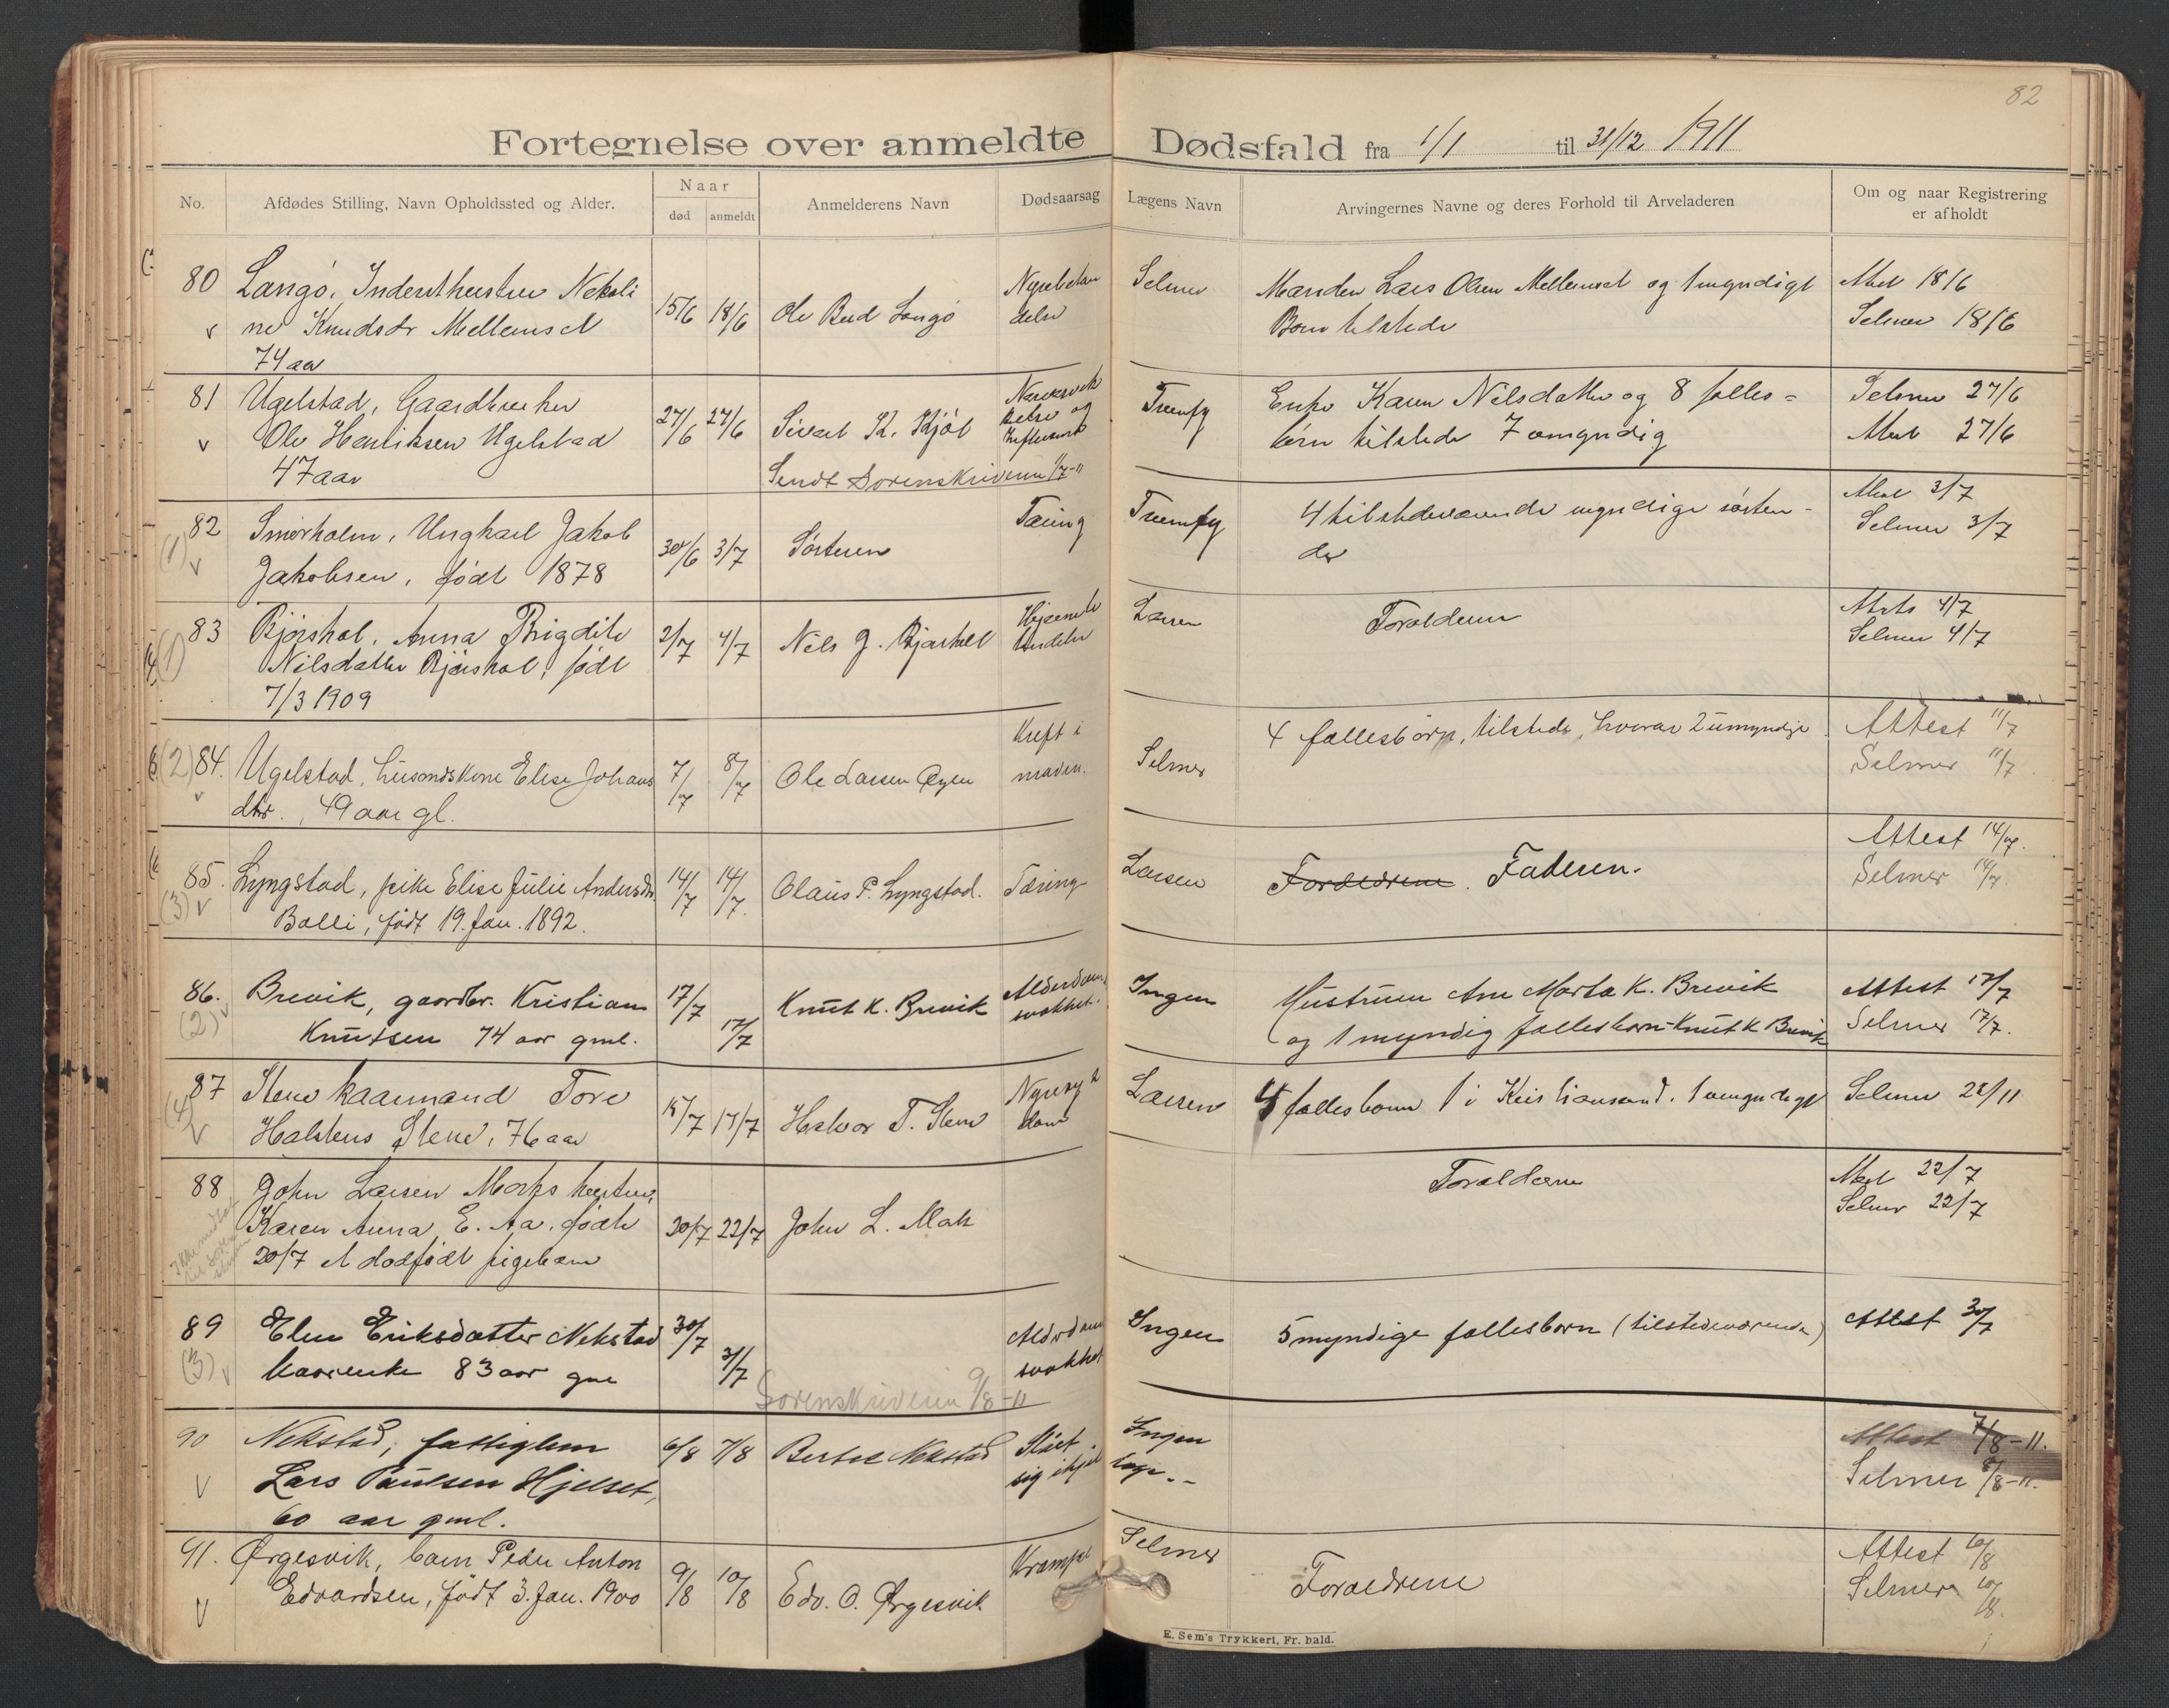 82
Fortegnelse over anmeldte Dødsfald fra 1/1 til 31/12 1911
No.
Afdødes Stilling, Navn Opholdssted og Alder.
Naar
død
anmeldt
Anmelderens Navn
Dødsaarsag
Lægens Navn
Arvingernes Navne og deres Forhold til Arveladeren
Om og naar Registrering
er afholdt
80
Langø, Indersthustru Nekoli
ne Knudsdr Mellemset
74 aar
15/6
18/6
Ole Langø
Selmer
Manden Lars Olsen Mellemset og 1 myndigt
Barn tilstede
18/6
Selmer 18/6
81
Ugelstad, Gaardbruker
Ole Henriksen Ugelstad
47 aar
27/6
27/6
Sivert K. Kjøl
Sendt Sorenskriveren 1/7-11
og
Enke Karen Nilsdatter og 8 fælles-
børn tilstede 7 umyndig
Selmer 27/6
27/6
82
(1)
Smørholm, Ungkarl Jakob
Jakobsen, født 1878
30/6
3/7
Søsteren
Tæring
4 tilstedeværende myndige søsken-
de
3/7
Selmer 3/7
83
(1)
Bjørshol, Anna Brigdite
Nilsdatter Bjørshol, født
7/3 1909
2/7
4/7
Nils J. Bjørshol
Larsen
Forældern
4/7
Selmer 4/7
(2) 84.
Ugelstad, husmandskone Elise Johans
dtr., 49 aar gl.
7/7
8/7
Ole Larsen Øyen
Kreft i
maven.
Selmer
4 fællesbørn, tilstede, hvorav 2 umyndige.
Attest 11/7
Selmer 11/7
85.
(3)
Lyngstad, pike Elise Julie Andersdtr.
Bolli, født 19. Jan. 1892.
14/7
14/7.
Olaus P. Lyngstad.
Tæring
Larsen
Forældrene. Faderen.
Attest 14/7.
Selmer 14/7.
86.
(2)
Brevik, gaardbr. Kristian
Knutsen 74 aar gml.
17/7
17/7
Knut K. Brevik
Alderdoms
svakhet.
Ingen
Hustruen Ane Marta K. Brevik
og 1 myndig fællesbarn-Knut K Brevik
Attest 17/7
Selmer 17/7.
87
(4)
Stene kaarmand Tore
Halstens Stene, 76 aar
15/7
17/7
Halvor T. Stene
Nyresyk
dom
Larsen
4 fællesbarn 1 i Kristiansund. 1 umyndigt
Selmer 22/11
88
John Larsen Moks hustru,
Karen Anna E. Aa. fødte
20/7 et dødfødt pigebarn
20/7
22/7
John L. Mok
Forældern
22/7
Selmer 22/7
89
(3)
Elen Eriksdatter Nekstad
kaarenke 83 aar gml
30/7
31/7
Sorenskriveren 9/8-11
Alderdoms
svakhet
Ingen
5 myndige fællesbørn (tilstedeværende)
Attest 30/7
90
Nekstad, fattiglem
Lars Paulsen Hjelset,
60 aar gml.
6/8
7/8
Bertel Nekstad
Slået
sig ihjel
Ingen
læge.-
Attest 7/8-11.
Selmer 8/8-11.
91.
Ørgesvik, barn Peder Anton
Edvardsen, født 3. Jan. 1900
9/8
10/8
Edv. O. Ørgesvik
Krampe
Selmer
Forældrene
Attest 10/8
Selmer 10/8.
E. Sem's Trykkeri, Fr. hald.